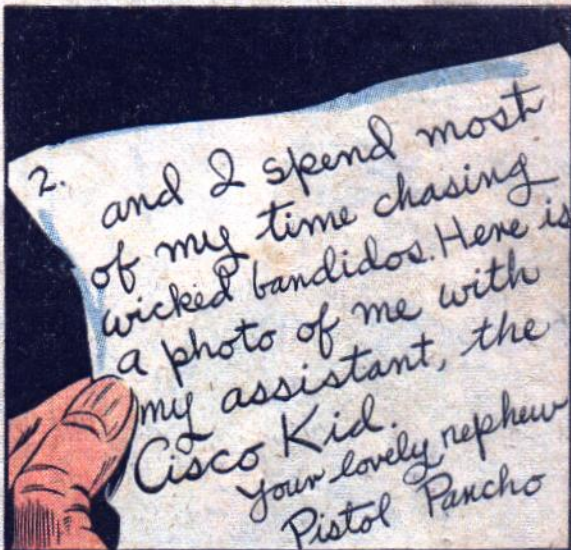 2.
and I spend most
of my time chasing
wicked bandidos. Here is
a photo of me with
my assistant, the
Cisco Kid.
Your lovely nephew
Pistol Pancho